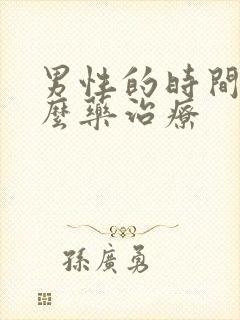 男性的時間
麼藥治療
孫廣勇